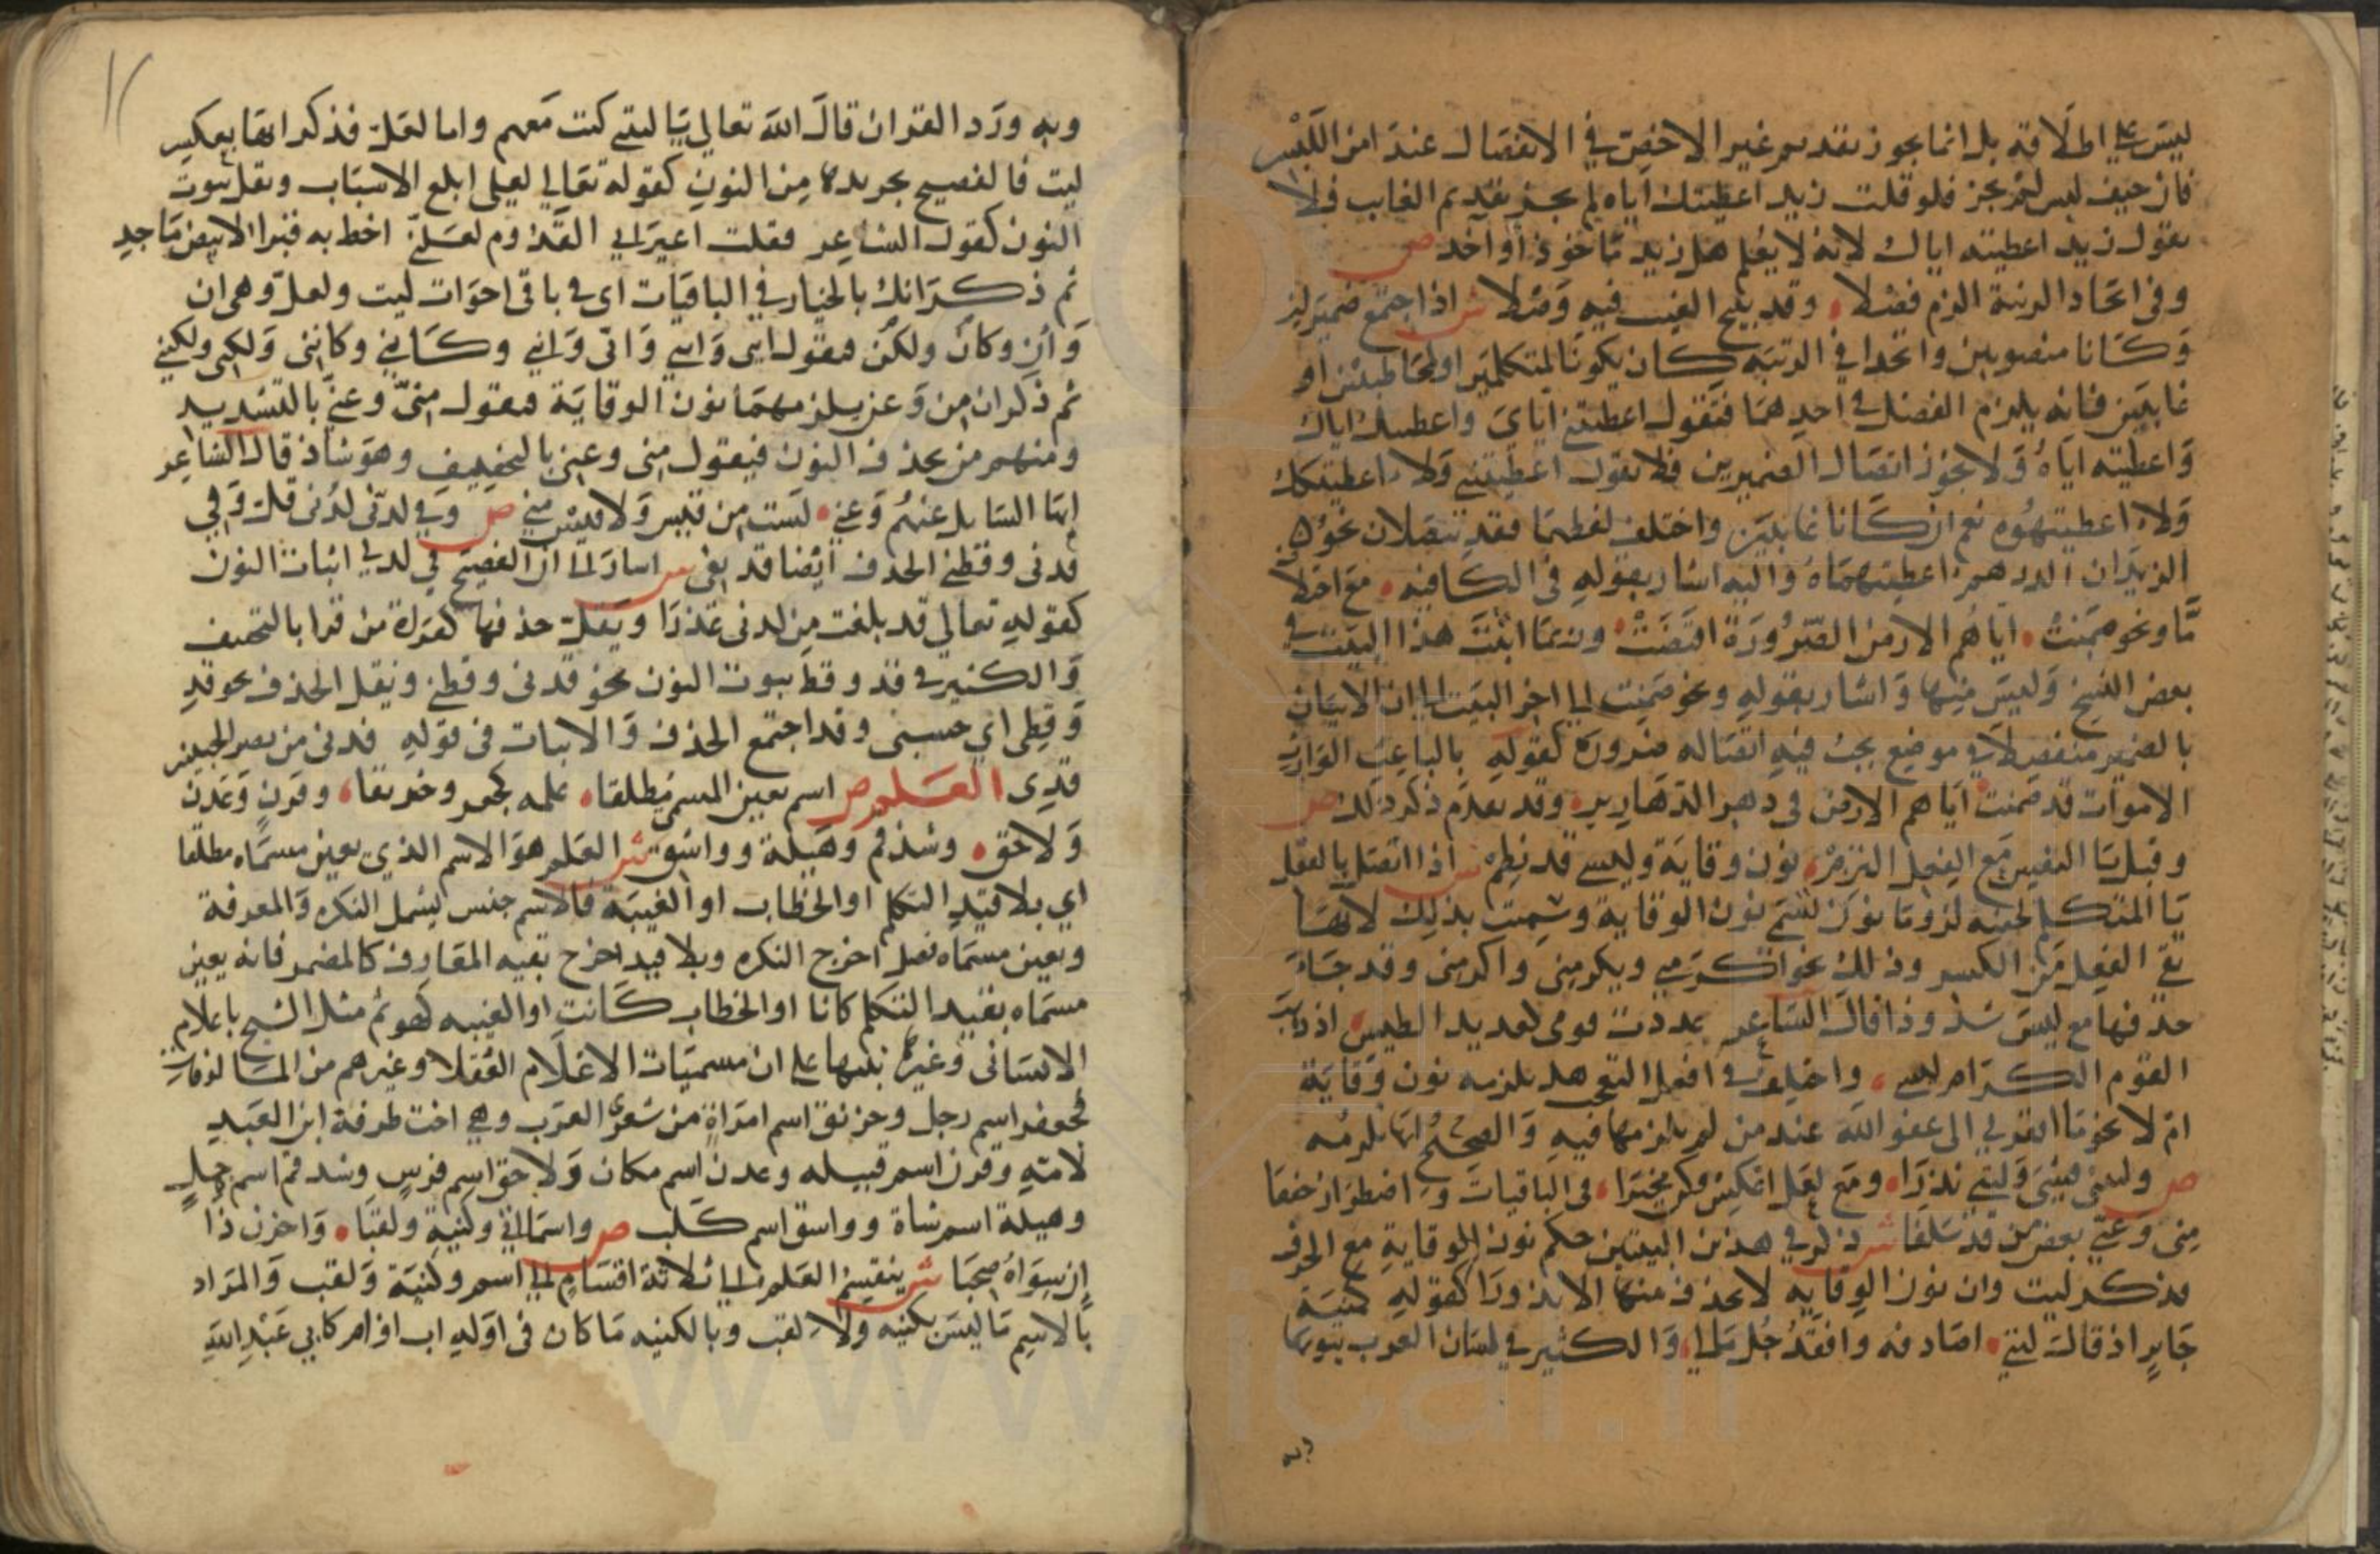 ليس على اطلاقه بل انما يجوز تقديم غير الاخص في الانفصال عند امن اللبس
فان خيف لبس لم يجز فلو قلت زيد اعطيتك اياه لم يجز تقديم الغايب فلا
تقول زيد اعطيته اياك لانه لا يعلم هل زيد ماخوذ أو آخذ ص
وفي اتحاد الرتبة الزم فصلا وقد يبيح الغيب فيه وصلا ش اذا اجتمع ضميران
وكانا منصوبين واتحدا في الرتبه كان يكونا لمتكلمين او مخاطبين او
غايبين فانه يلزم الفصل في احدهما فتقول اعطيتني اياي واعطيتك اياك
واعطيته اياه ولا يجوز اتصال الضميرين فلا تقول اعطيتنني ولا اعطيتكك
ولا اعطيتهوه نعم ان كانا غايبين واختلف لفظهما فقد يتصلان نحو
الزيدان الدرهم اعطيتهماه واليه اشار بقوله في الكافيه مع اختلاف
ما ونحو ضمنت اياهم الارض الضرورة اقتضت وربما اثبت هذا البيت في
بعض النسخ وليس منها واشار بقوله ونحو ضمنت الى اخر البيت الى ان الاتيان
بالضمير منفصلا في موضع يجب فيه اتصاله ضرورة كقوله بالباعث الوارث
الاموات قد ضمنت اياهم الارض في دهر الدهارير وقد تقدم ذكر ذلك ص
وقبل يا النفس مع الفعل التزم نون وقاية وليسي قد نظم ش اذا اتصل بالفعل
يا المتكلم لحقته لزوما نون تسمى نون الوقاية وسميت بذلك لانها
تقي الفعل من الكسر وذلك نحو اكرمني ويكرمني واكرمني وقد جاء
حذفها مع ليس شذوذا قال الشاعر عددت قومي كعديد الطيس اذ ذهب
القوم الكرام ليسي واختلف في افعل التعجب هل تلزمه نون وقاية
ام لا نحو ما افقرني الى عفو الله عند من لم يلزمها فيه والصحيح انها تلزمه
ص وليتني فشى وليتي ندرا ومع لعل اعكس وكن مخيرا في الباقيات واضطرارا خففا
مني وعني بعض من قد سلفا ش ذكر في هذين البيتين حكم نون الوقاية مع الحرف
فذكر ليت وان نون الوقايه لا تحذف منها الا ندورا كقوله كمنية
جابر اذ قال ليتي اصادفه وافقد جل مالي والكثير في لسان العرب ثبوتها
وبه
وبه ورد القران قال الله تعالى يا ليتني كنت معهم واما لعل فذكر انها بعكس
ليت فالفصيح تجريدها من النون كقوله تعالى لعلي ابلغ الاسباب ويقل ثبوت
النون كقول الشاعر فقلت اعيراني القدوم لعلني اخط به قبرا لابيض ماجد
ثم ذكر انك بالخيار في الباقيات اى في باقي اخوات ليت ولعل وهي ان
وأن وكان ولكن فتقول اني وانني واني وانني وكاني وكانني ولكني ولكنني
ثم ذكر ان من وعن يلزمهما نون الوقاية فتقول مني وعني بالتشديد
ومنهم من يحذف النون فيقول مني وعني بالتخفيف وهو شاذ قال الشاعر
ايها السايل عنهم وعني لست من قيس ولا قيس مني ص وفي لدني لدني قل وفي
قدني وقطني الحذف ايضا قد يفي ش اشار الى ان الفصيح في لدني اثبات النون
كقوله تعالى قد بلغت من لدني عذرا ويقل حذفها كقراة من قرا بالتخفيف
والكثير في قد وقط ثبوت النون نحو قدني وقطني ويقل الحذف نحو قدي
وقطي اي حسبي وقد اجتمع الحذف والاثبات في قوله قدني من نصر الخبيبين
قدي العلم ص اسم يعين المسمى مطلقا علمه كجعفر وخرنقا وقرن وعدن
ولاحق وشذقم وهيلة وواشق ش العلم هو الاسم الذي يعين مسماه مطلقا
اي بلا قيد التكلم او الخطاب او الغيبة فالاسم جنس يشمل النكره والمعرفة
ويعين مسماه فصل اخرج النكره وبلا قيد اخرج بقيه المعارف كالمضمر فانه يعين
مسماه بقيد التكلم كانا او الخطاب كانت او الغيبه كهو ثم مثل الشيخ باعلام
الانساني وغيره تنبيها على ان مسميات الاعلام العقلا وغيرهم من المالوفات
فجعفر اسم رجل وخرنق اسم امراة من شعراء العرب وهي اخت طرفة ابن العبد
لامه وقرن اسم قبيله وعدن اسم مكان ولاحق اسم فرس وشذقم اسم جمل
وهيلة اسم شاة وواشق اسم كلب ص واسما اتى وكنية ولقبا واخرن ذا
ان سواه صحبا ش ينقسم العلم الى ثلاثة اقسام الى اسم وكنية ولقب والمراد
بالاسم ما ليس بكنيه ولا لقب وبالكنيه ما كان في اوله اب او ام كابي عبد الله